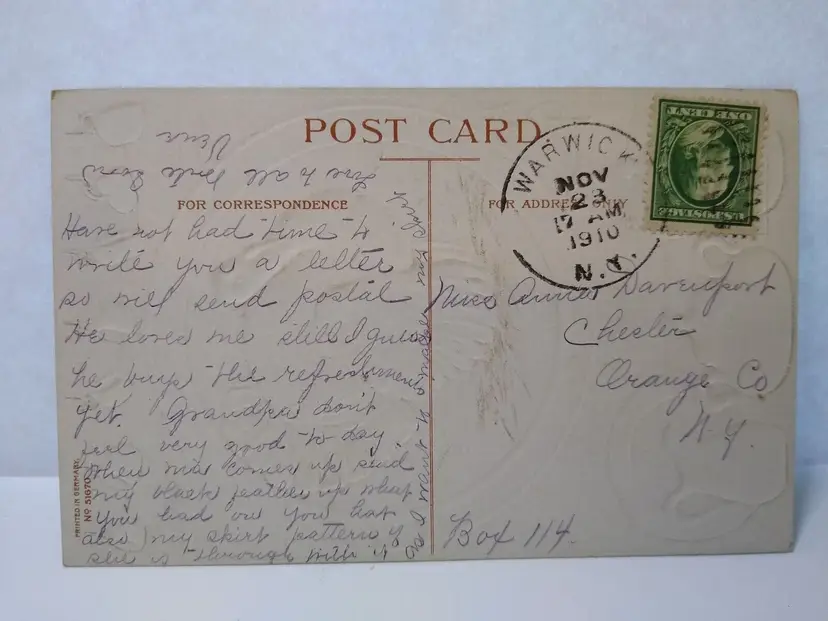 POST CARD
FOR CORRESPONDENCE
FOR ADDRESS ONLY
WARWICK
NOV
23
7 AM
1910
N.Y.
Have not had time to
write you a letter
so will send postal
He loves me still I guess
he buys the refreshments
yet. Grandpa don't
feel very good to day.
When ma comes up send
my black feather up what
you had on you hat
also my skirt pattern if
she is through with it
Love to all
Miss Anna Davenport
Chester
Orange Co
N.Y.
Box 114.
PRINTED IN GERMANY
No 51670
ONE CENT
U.S. POSTAGE